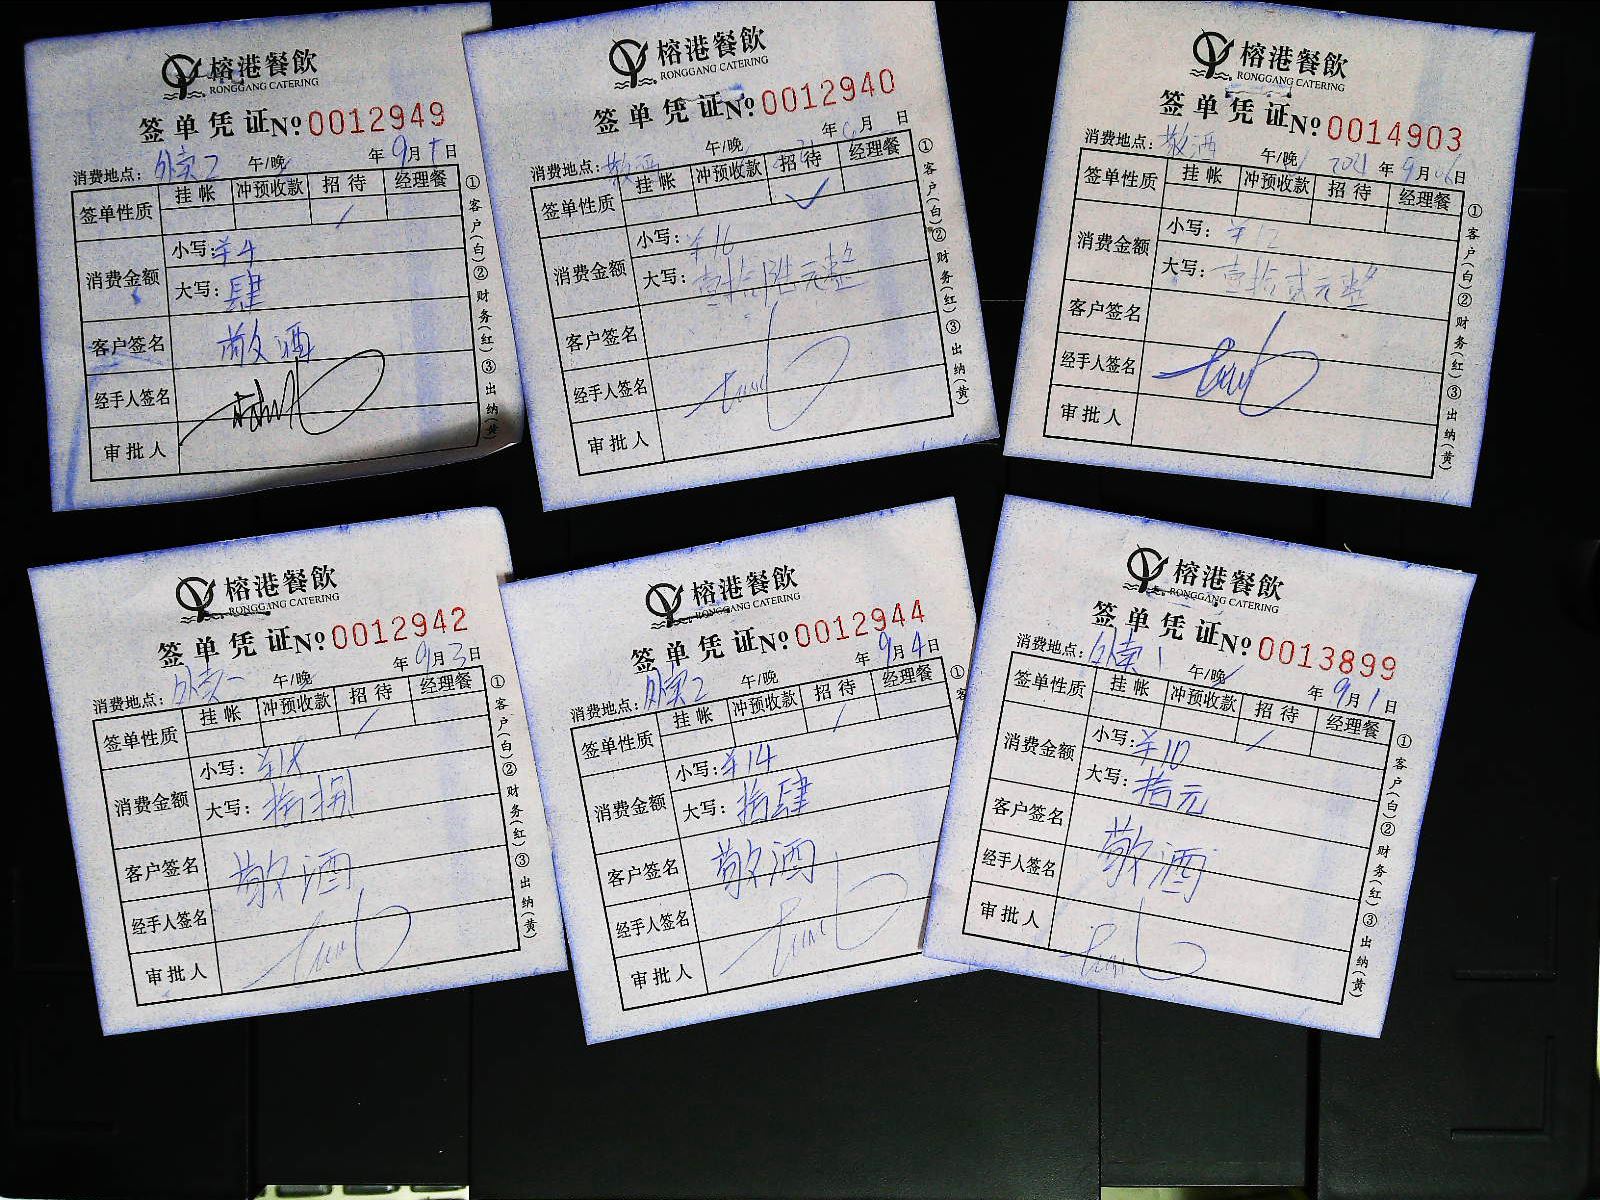 榕港餐飲
RONGGANG CATERING
签单凭证 № 0012949
消费地点：外卖2 午/晚 年9月 日
签单性质 挂帐 冲预收款 招待 经理餐
/
消费金额 小写：¥4
大写：肆
客户签名 敬酒
经手人签名
审批人
①客户(白)②财务(红)③出纳(黄)
榕港餐飲
RONGGANG CATERING
签单凭证 № 0012940
消费地点：敬酒 午/晚 年 月 日
签单性质 挂帐 冲预收款 招待 经理餐
✓
消费金额 小写：¥16
大写：壹拾陆元整
客户签名
经手人签名
审批人
①客户(白)②财务(红)③出纳(黄)
榕港餐飲
RONGGANG CATERING
签单凭证 № 0014903
消费地点：敬酒 午/晚 2021年9月06日
签单性质 挂帐 冲预收款 招待 经理餐
消费金额 小写：¥12
大写：壹拾贰元整
客户签名
经手人签名
审批人
①客户(白)②财务(红)③出纳(黄)
榕港餐飲
RONGGANG CATERING
签单凭证 № 0012942
消费地点：外卖一 午/晚 年9月3日
签单性质 挂帐 冲预收款 招待 经理餐
/
消费金额 小写：¥18
大写：拾捌
客户签名 敬酒
经手人签名
审批人
①客户(白)②财务(红)③出纳(黄)
榕港餐飲
RONGGANG CATERING
签单凭证 № 0012944
消费地点：外卖2 午/晚 年9月4日
签单性质 挂帐 冲预收款 招待 经理餐
/
消费金额 小写：¥14
大写：拾肆
客户签名 敬酒
经手人签名
审批人
①客
榕港餐飲
RONGGANG CATERING
签单凭证 № 0013899
消费地点：外卖1 午/晚 年9月1日
签单性质 挂帐 冲预收款 招待 经理餐
/
消费金额 小写：¥10
大写：拾元
客户签名 敬酒
经手人签名
审批人
①客户(白)②财务(红)③出纳(黄)